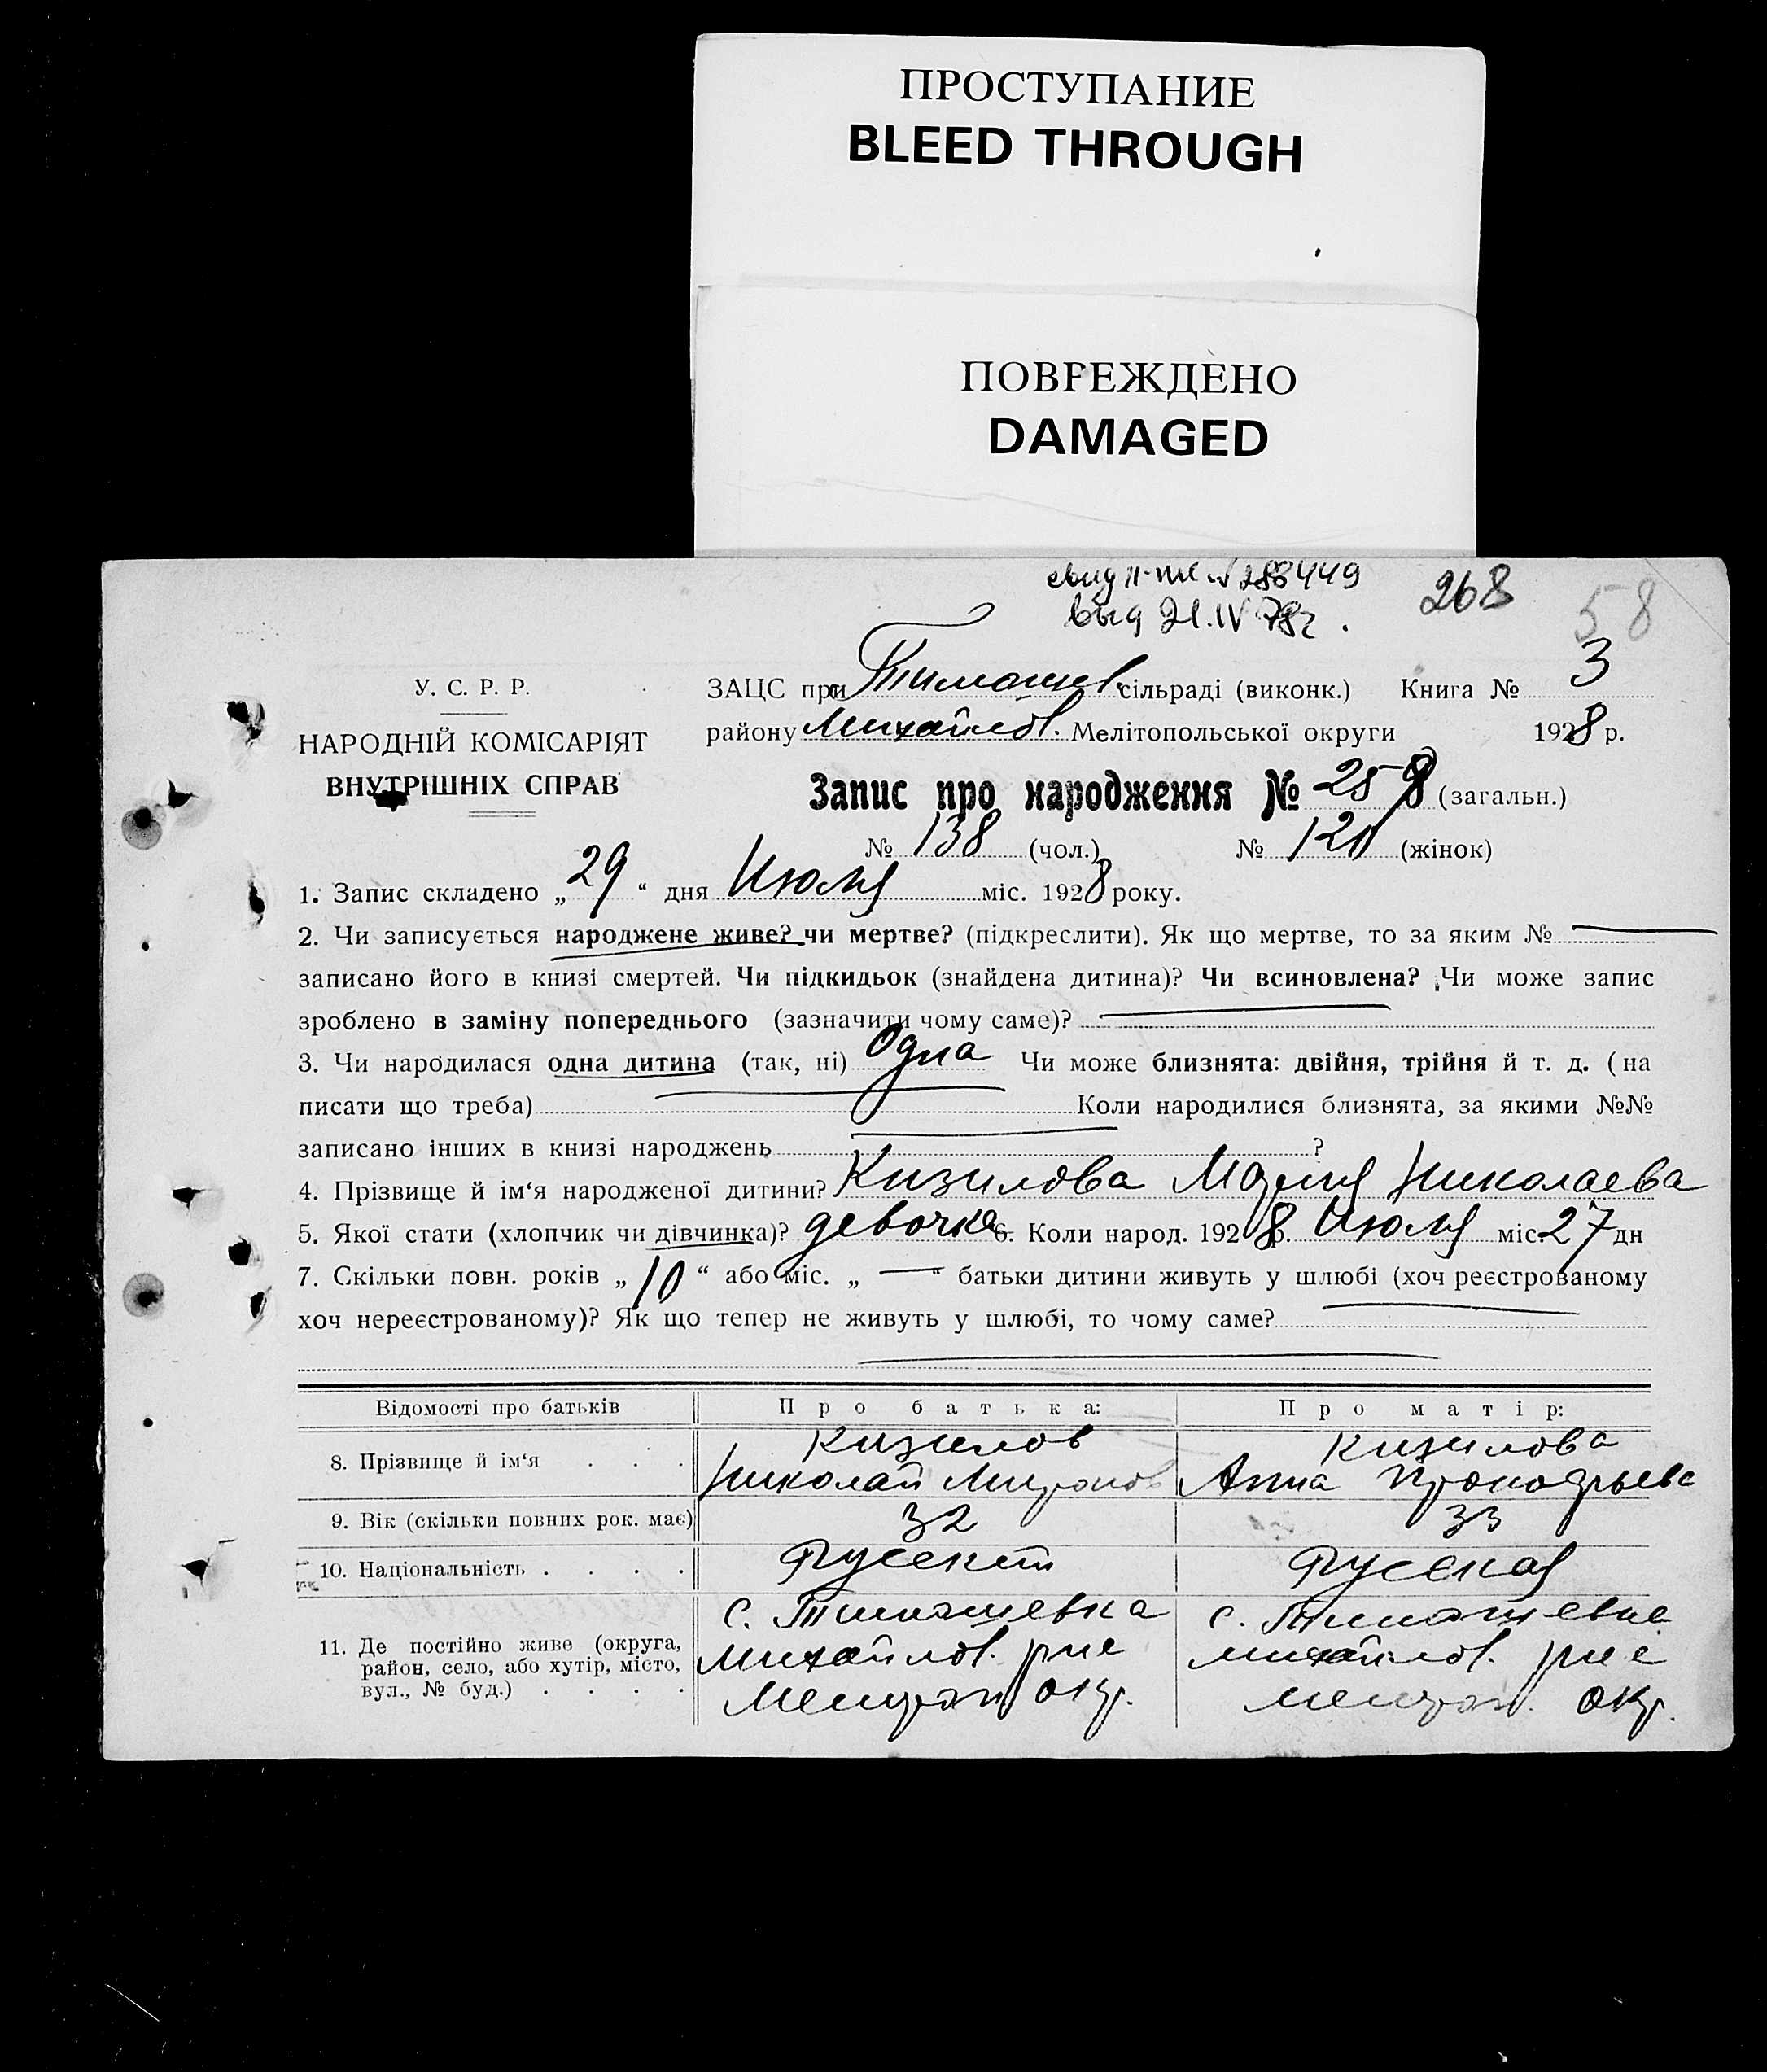 ПРОСТУПАНИЕ
BLEED THROUGH
ПОВРЕЖДЕНО
DAMAGED
№ 288449
выд 21.IV 78г.
268
58
У. С. Р. Р.
НАРОДНІЙ КОМІСАРІЯТ
ВНУТРІШНІХ СПРАВ
ЗАЦС при Тимошев. сільраді (виконк.) Книга № 3
району Михайлов. Мелітопольської округи 1928 р.
Запис про народження № 258 (загальн.)
№ 138 (чол.) № 120 (жінок)
1. Запис складено „29“ дня Июля міс. 1928 року.
2. Чи записується народжене живе? чи мертве? (підкреслити). Як що мертве, то за яким №
записано його в книзі смертей. Чи підкидьок (знайдена дитина)? Чи всиновлена? Чи може запис
зроблено в заміну попереднього (зазначити чому саме)?
3. Чи народилася одна дитина (так, ні) Одна Чи може близнята: двійня, трійня й т. д. (на
писати що треба) Коли народилися близнята, за якими №№
записано інших в книзі народжень ?
4. Прізвище й ім‘я народженої дитини? Кизилова Мария Николаева
5. Якої стати (хлопчик чи дівчинка)? девочка 6. Коли народ. 1928 р. Июля міс. 27 дн
7. Скільки повн. років „10“ або міс. „—“ батьки дитини живуть у шлюбі (хоч реєстрованому
хоч нереєстрованому)? Як що тепер не живуть у шлюбі, то чому саме?
Відомості про батьків Про батька: Про матір:
8. Прізвище й ім‘я . . . Кизилов Кизилова
Николай Миронов Анна Прокофьева
9. Вік (скільки повних рок. має) 32 33
10. Національність . . . . Русский Русская
11. Де постійно живе (округа, район, село, або хутір, місто, вул., № буд.) . . . .
с. Тимошевка с. Тимошевка
Михайлов. Михайлов.
Мелитоп окр. Мелитоп. окр.